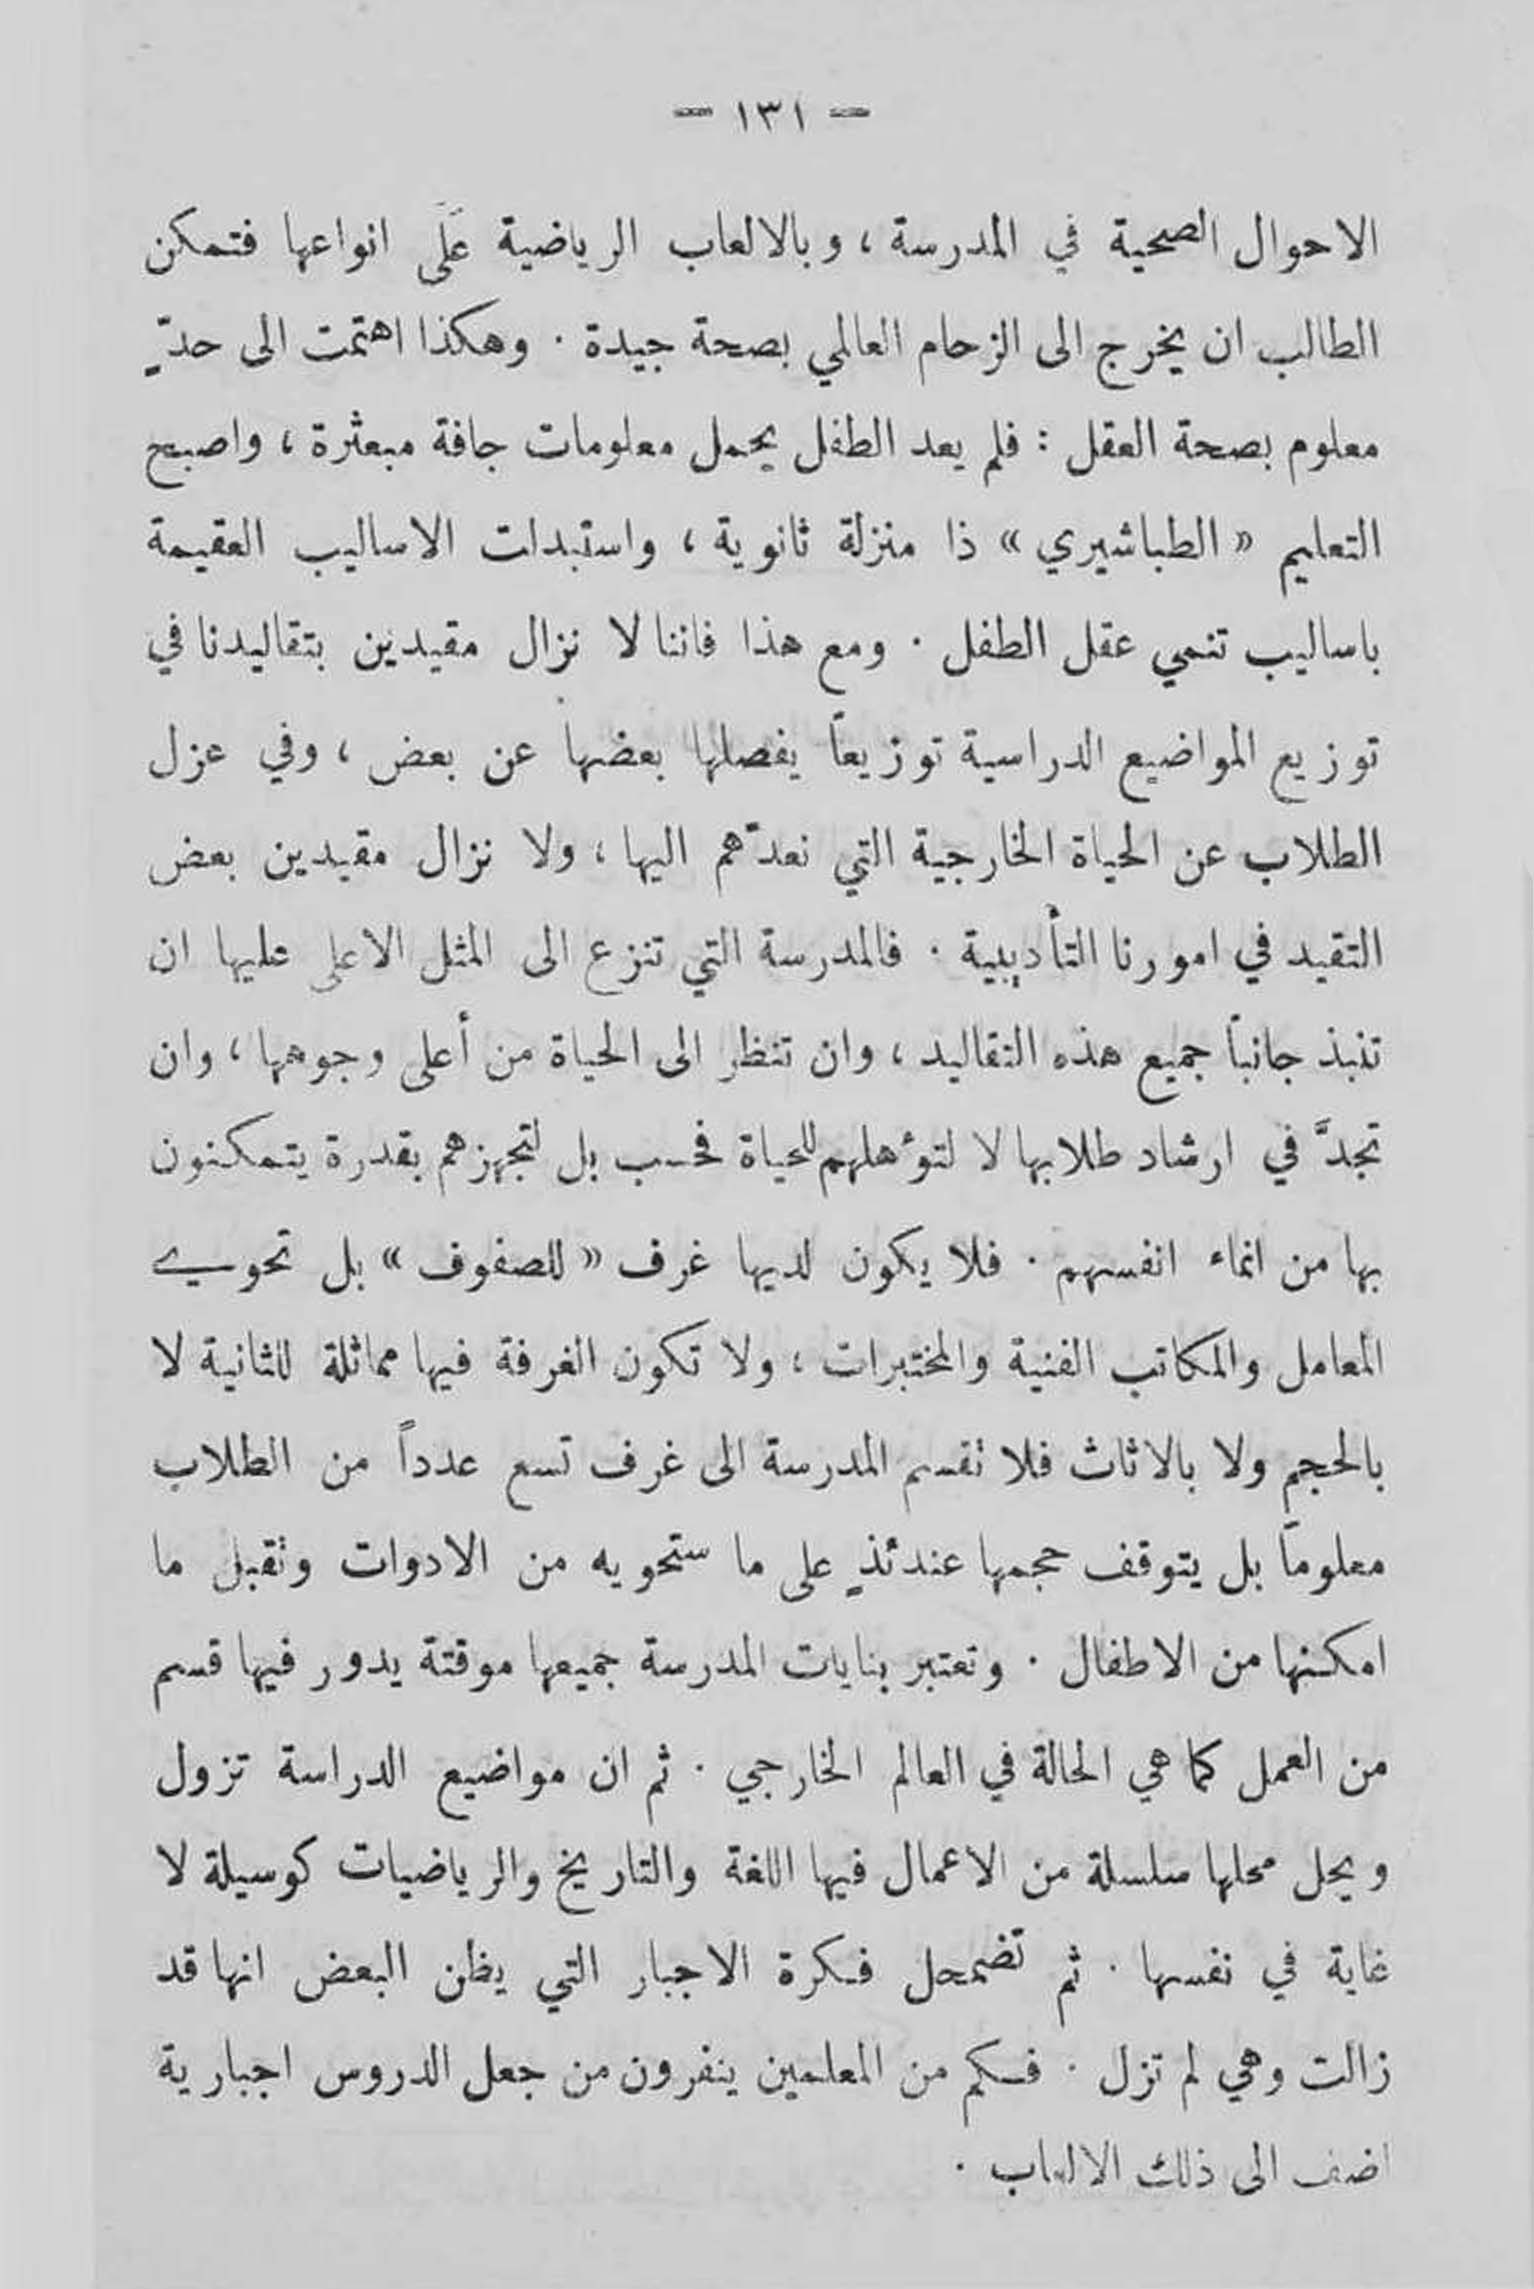 — ١٣١ —
الاحوال الصحية في المدرسة ، وبالالعاب الرياضية عَلَى انواعها فتمكن
الطالب ان يخرج الى الزحام العالمي بصحة جيدة . وهكذا اهتمت الى حدّ
معلوم بصحة العقل : فلم يعد الطفل يحمل معلومات جافة مبعثرة ، واصبح
التعليم « الطباشيري » ذا منزلة ثانوية ، واستبدلت الاساليب العقيمة
باساليب تنمي عقل الطفل . ومع هذا فاننا لا نزال مقيدين بتقاليدنا في
توزيع المواضيع الدراسية توزيعاً يفصلها بعضها عن بعض ، وفي عزل
الطلاب عن الحياة الخارجية التي نعدّهم اليها ، ولا نزال مقيدين بعض
التقيد في امورنا التأديبية . فالمدرسة التي تنزع الى المثل الاعلى عليها ان
تنبذ جانباً جميع هذه التقاليد ، وان تنظر الى الحياة من أعلى وجوهها ، وان
تجدَّ في ارشاد طلابها لا لتؤهلهم للحياة فحسب بل لتجهزهم بقدرة يتمكنون
بها من انماء انفسهم . فلا يكون لديها غرف « للصفوف » بل تحوي
المعامل والمكاتب الفنية والمختبرات ، ولا تكون الغرفة فيها مماثلة للثانية لا
بالحجم ولا بالاثاث فلا تقسم المدرسة الى غرف تسع عدداً من الطلاب
معلوماً بل يتوقف حجمها عندئذٍ على ما ستحويه من الادوات وتقبل ما
امكنها من الاطفال . وتعتبر بنايات المدرسة جميعها موقتة يدور فيها قسم
من العمل كما هي الحالة في العالم الخارجي . ثم ان مواضيع الدراسة تزول
ويحل محلها سلسلة من الاعمال فيها اللغة والتاريخ والرياضيات كوسيلة لا
غاية في نفسها . ثم تضمحل فكرة الاجبار التي يظن البعض انها قد
زالت وهي لم تزل . فكم من المعلمين ينفرون من جعل الدروس اجبارية
اضف الى ذلك الالعاب .